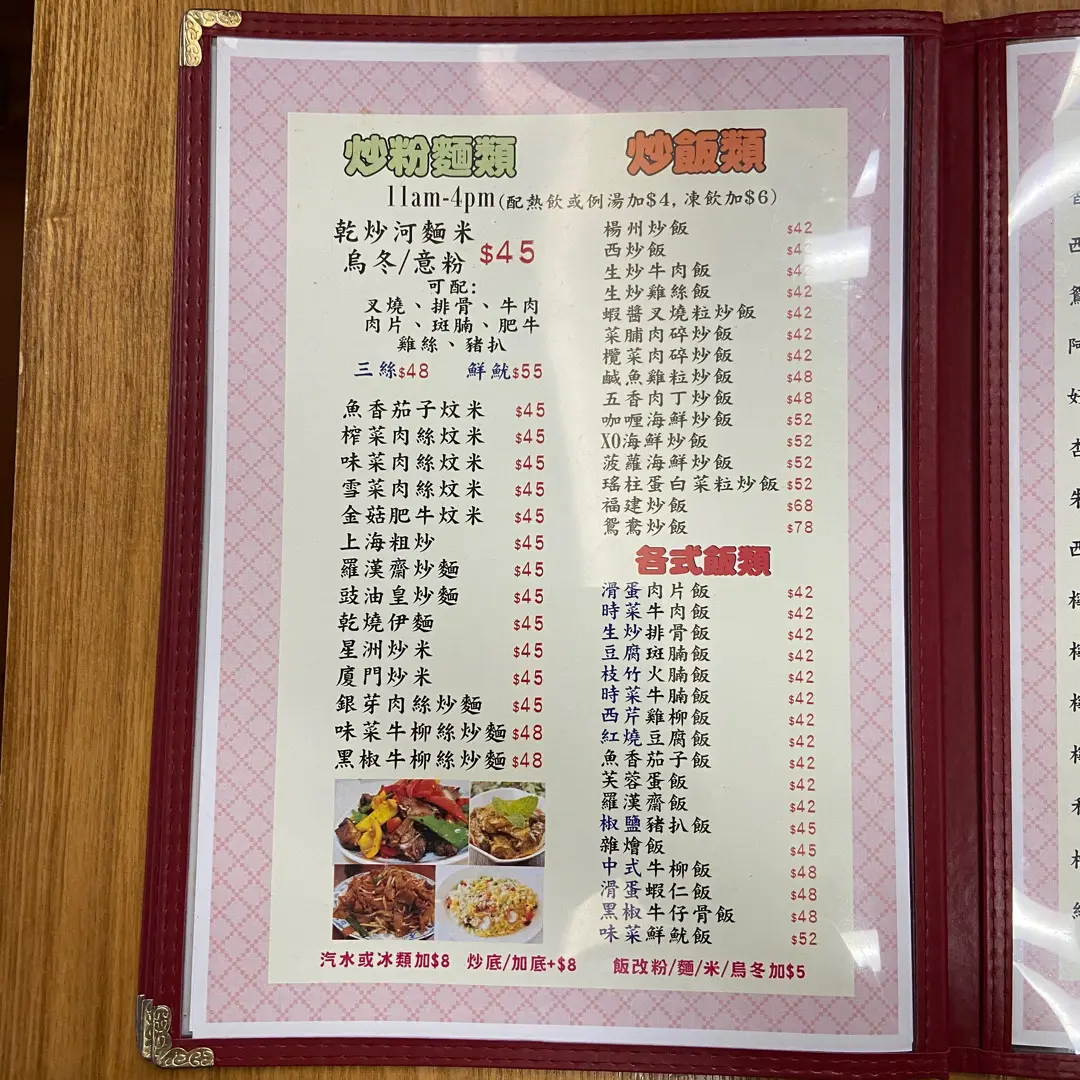 炒粉麵類
11am-4pm(配熱飲或例湯加$4,凍飲加$6)
乾炒河麵米
烏冬/意粉 $45
可配:
叉燒、排骨、牛肉
肉片、斑腩、肥牛
雞絲、豬扒
三絲$48 鮮魷$55
魚香茄子炆米 $45
榨菜肉絲炆米 $45
味菜肉絲炆米 $45
雪菜肉絲炆米 $45
金菇肥牛炆米 $45
上海粗炒 $45
羅漢齋炒麵 $45
豉油皇炒麵 $45
乾燒伊麵 $45
星洲炒米 $45
廈門炒米 $45
銀芽肉絲炒麵 $45
味菜牛柳絲炒麵 $48
黑椒牛柳絲炒麵 $48
炒飯類
楊州炒飯 $42
西炒飯 $42
生炒牛肉飯 $42
生炒雞絲飯 $42
蝦醬叉燒粒炒飯 $42
菜脯肉碎炒飯 $42
欖菜肉碎炒飯 $42
鹹魚雞粒炒飯 $48
五香肉丁炒飯 $48
咖喱海鮮炒飯 $52
XO海鮮炒飯 $52
菠蘿海鮮炒飯 $52
瑤柱蛋白菜粒炒飯 $52
福建炒飯 $68
鴛鴦炒飯 $78
各式飯類
滑蛋肉片飯 $42
時菜牛肉飯 $42
生炒排骨飯 $42
豆腐斑腩飯 $42
枝竹火腩飯 $42
時菜牛腩飯 $42
西芹雞柳飯 $42
紅燒豆腐飯 $42
魚香茄子飯 $42
芙蓉蛋飯 $42
羅漢齋飯 $42
椒鹽豬扒飯 $45
雜燴飯 $45
中式牛柳飯 $48
滑蛋蝦仁飯 $48
黑椒牛仔骨飯 $48
味菜鮮魷飯 $52
汽水或冰類加$8 炒底/加底+$8 飯改粉/麵/米/烏冬加$5